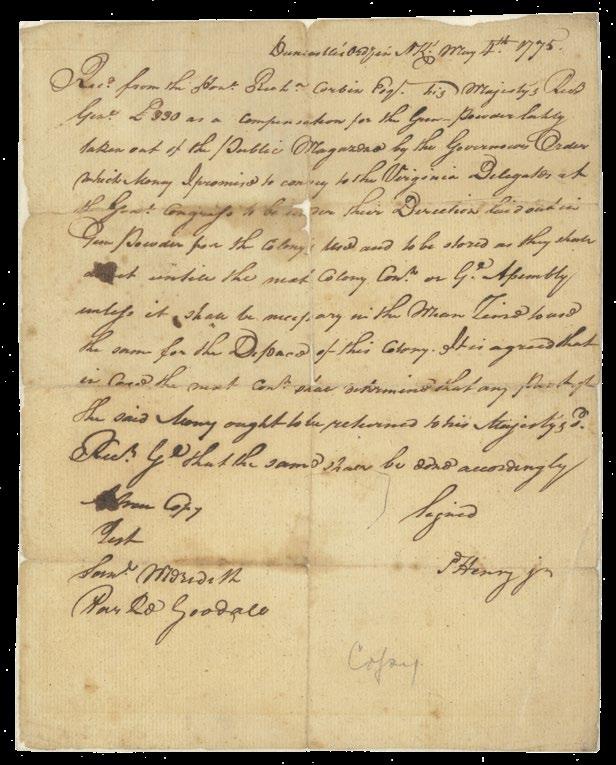 Duncastle's Ordy in N Kt. May 4th. 1775.
Recd. from the Honl. Richd. Corbin Esqr. his Majesty's Recr
Genl. £330 as a Compensation for the Gun-Powder lately
taken out of the Public Magazene by the Governours Order
which Money I promise to convey to the Virginia Delegates at
the Genl. Congress to be under their Direction laid out in
Gun Powder for the Colony's Use and to be stored as they shall
untill the next Colony Conn. or Gl. Assembly
unless it shall be necessary in the Mean Time to use
the same for the Defence of this Colony. It is agreed that
in Case the next Conn. shall determine that any Part of
the said Money ought to be returned to his Majesty's sd.
Recr. Gl. that the same shall be done accordingly
A true Copy
Signed
Test
Saml. Meredith
P Henry jr
Parke Goodale
Copy